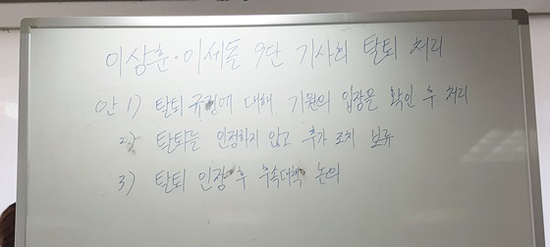 이상훈·이세돌 9단 기사회 탈퇴 처리
안 1) 탈퇴 규정에 대해 기원의 입장을 확인 후 처리
2) 탈퇴는 인정하지 않고 추가 조치 보류
3) 탈퇴 인정 후 후속대책 논의